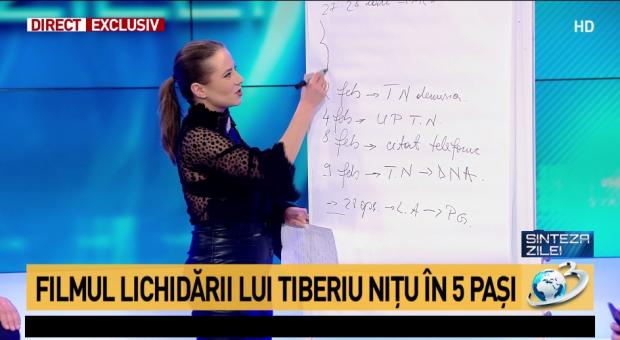 DIRECT EXCLUSIV
HD
27 28
feb → T.N demisia
4 feb → U P T.N.
8 feb → citat telefonic
9 feb → T.N → DNA.
→ 28 apr. → L.A → PG.
SINTEZA
ZILEI
FILMUL LICHIDĂRII LUI TIBERIU NIȚU ÎN 5 PAȘI
3